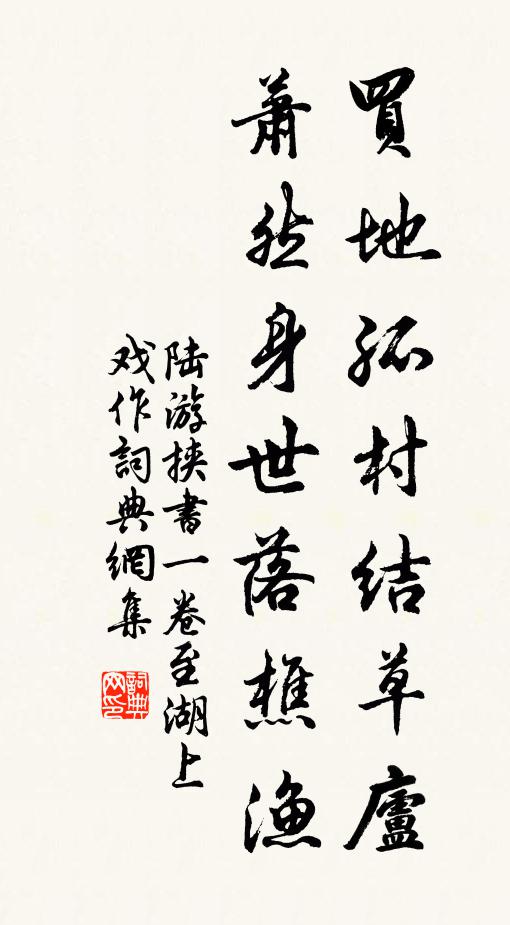 買地孤村結草廬
蕭然身世落樵漁
陆游挟書一卷至湖上
戏作詞典網集
詞典网印